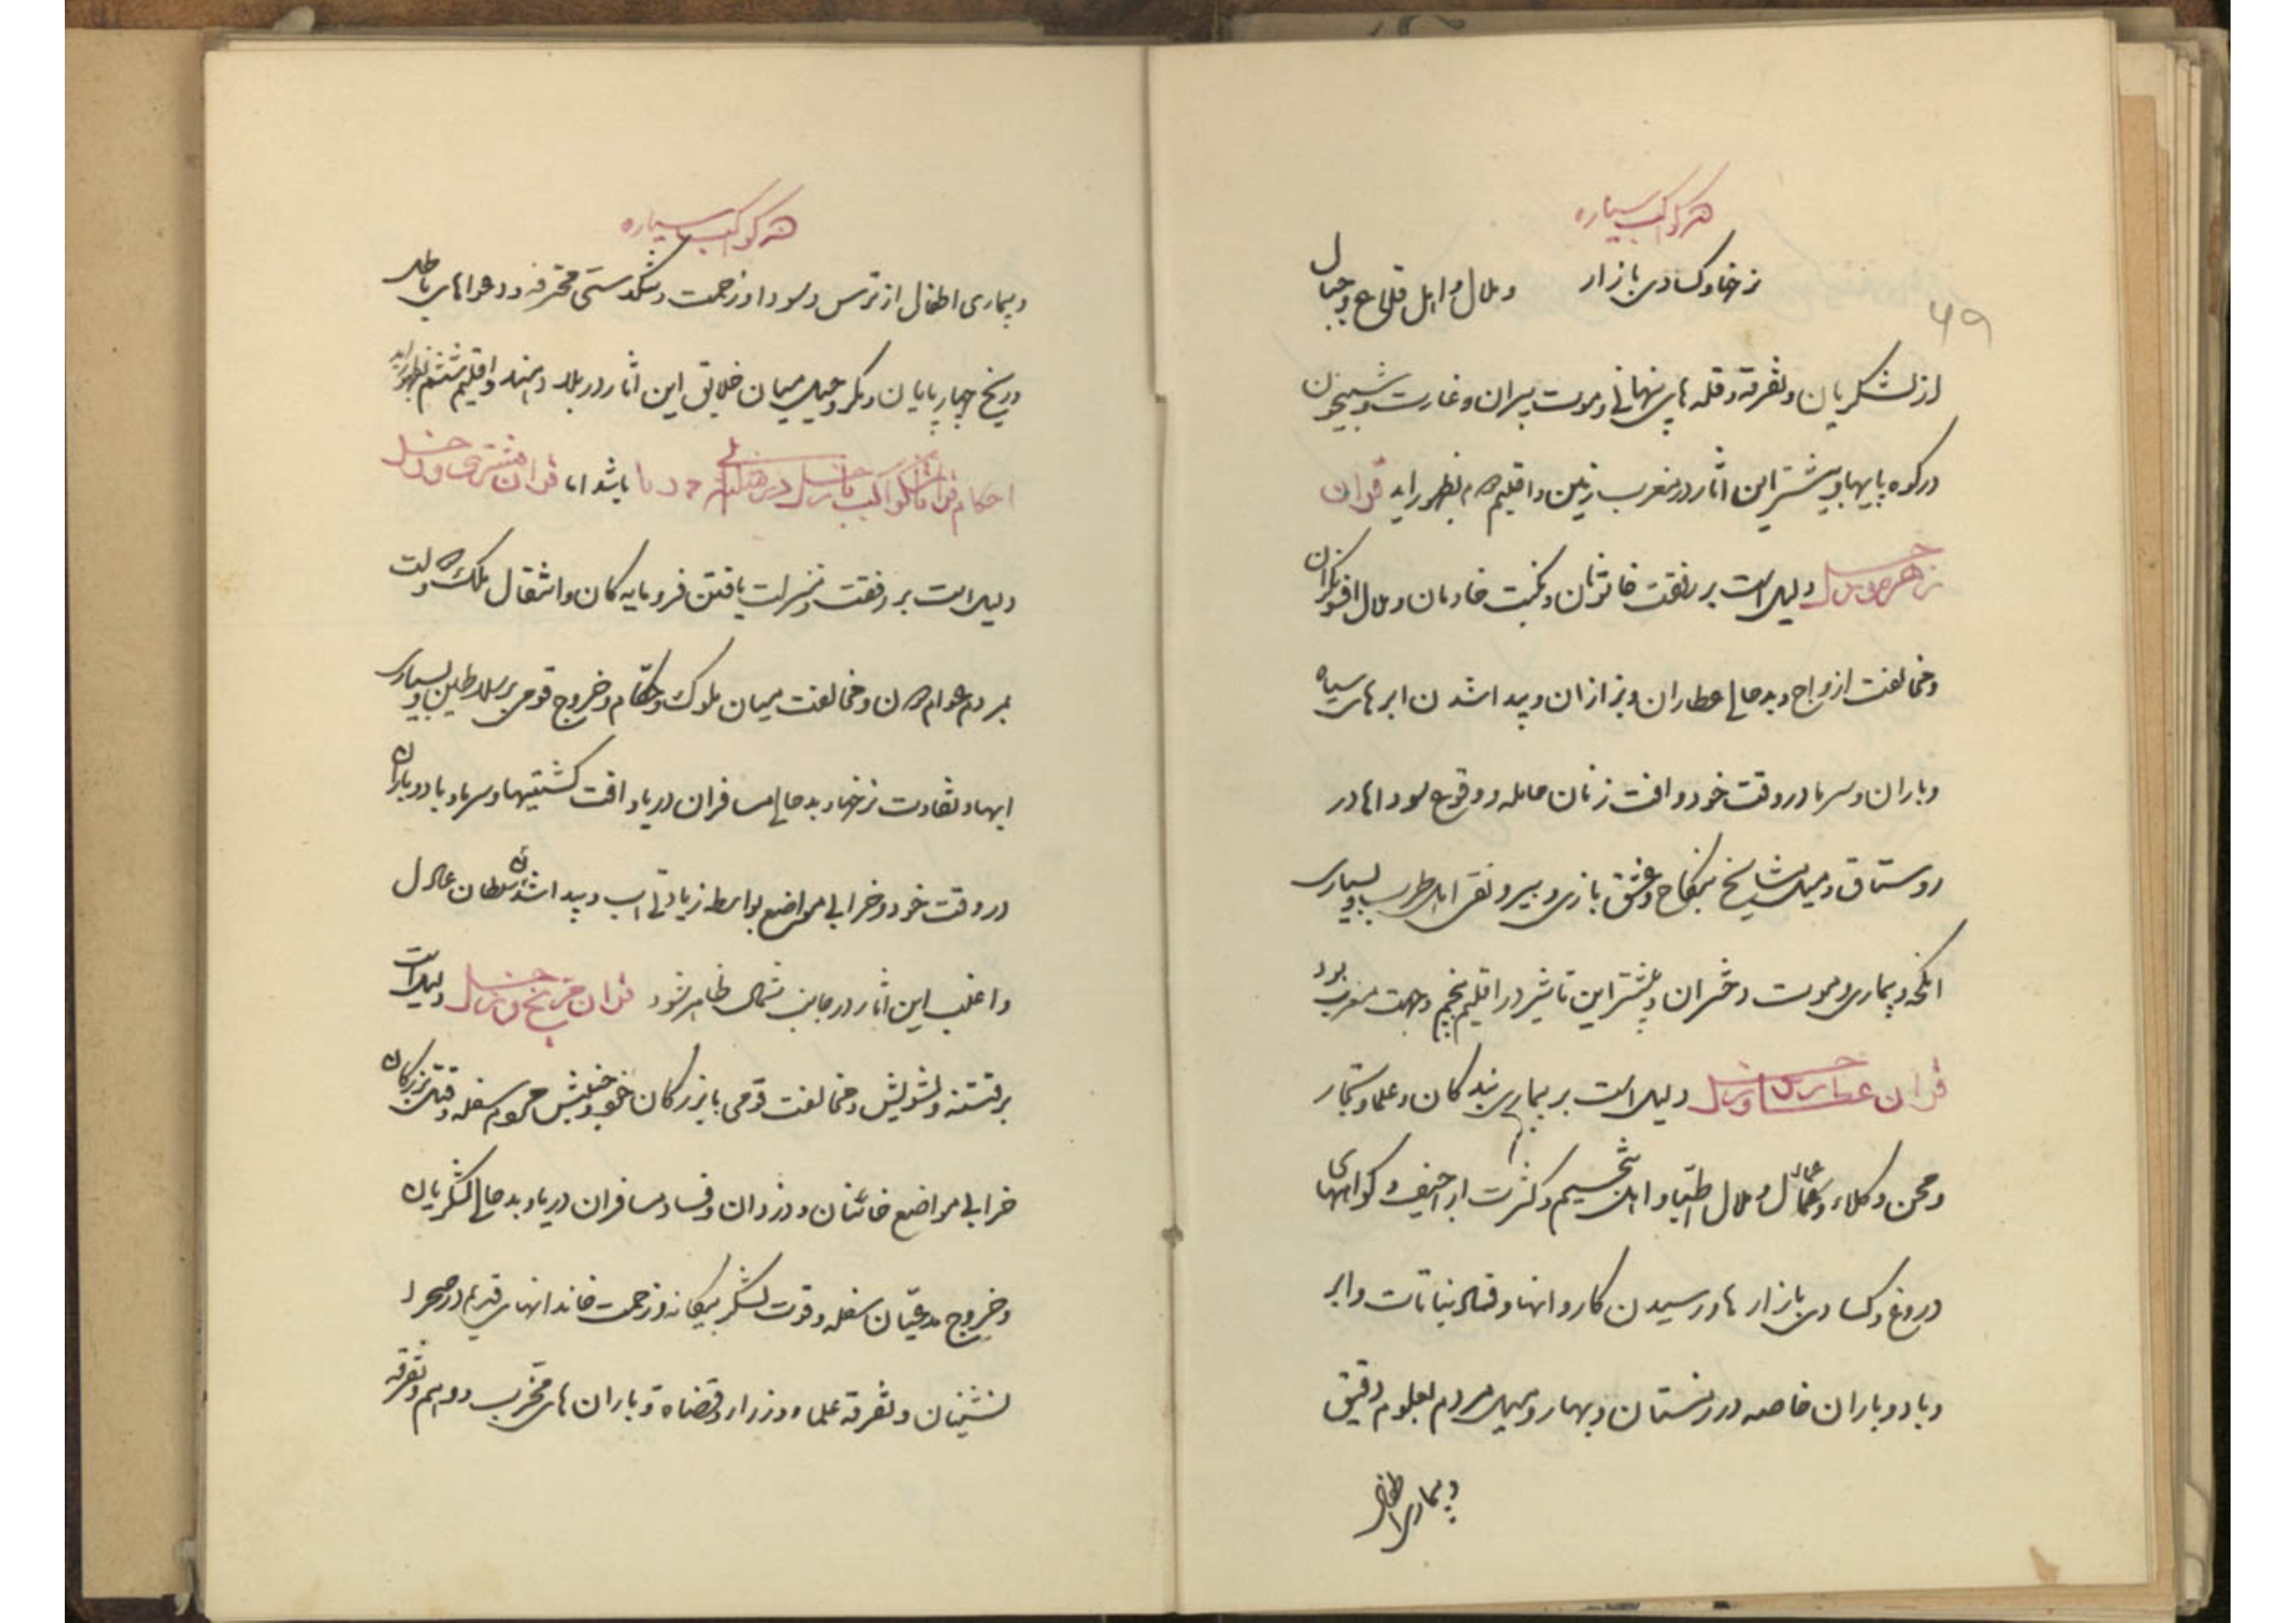 هر کواکب سیاره
۴۹
نرخها و کسادی بازار و ملال و اهل قلاع و جبال
از لشکریان و تفرقه و قلعه های پنهانی و موت پیران و غارت و شبیخون
در کوه پایها و بیشتر این اثار در مغرب زمین و اقلیم بظهور اید قران
زهره و زحل دلیل است بر رفعت خاتونان و نکبت خادمان و ملال
و مخالفت ازواج و بدحالی عطاران و بزازان و پیدا شدن ابرهای سیاه
و باران و سرما در وقت خود و افت زنان حامله و وقوع سوداها در
روستاق و میل مشایخ بنکاح و عشق بازی و پیر و نقر اهل طرب و بسیاری
انکحه و بیماری و موت دختران و بیشتر این تاثیر در اقلیم پنجم و جهت مغرب بود
قران عطارد و زحل دلیل است بر بیماری بندکان و علما و تجار
و محن وکلاء و عمال و ملال اطبا و اهل تنجیم و کثرت اراجیف و کواهیهای
دروغ و کسادی بازار ها و رسیدن کاروانها و فساد نباتات و ابر
و باد و باران خاصه در زمستان و بهار و میل مردم بعلوم دقیق
و بیماری اطفال
هر کواکب سیاره
و بیماری اطفال از ترس و سودا و زحمت و تنکدستی محترفه و دعواهای باطل
و رنج چهارپایان و مکر و حیل میان خلایق این اثار در بلاد هند و اقلیم ششم بظهور اید
احکام قرانات کواکب با زحل در مثلثه باشد اما قران مشتری و زحل
دلیل است بر رفعت و منزلت یافتن فرومایه کان و انتقال ملک و دولت
بمردم عوام و مخالفت میان ملوک و حکام و خروج قومی بر سلاطین و بسیاری
ابها و تفاوت نرخها و بدحالی مسافران دریا و افت کشتیها و سرما و باد و باران
در وقت خود و خرابی مواضع بواسطه زیادتی اب و پیدا شدن سلطان عادل
و اغلب این اثار در جانب شمال ظاهر شود قران مریخ و زحل دلیل است
بر فتنه و تشویش و مخالفت قومی با بزرکان خود و جنبش مردم سفله و قتل بزرکان
خرابی مواضع خائنان و دزدان و فساد مسافران دریا و بدحالی لشکریان
و خروج مدعیان سفله و قوت لشکر بیکانه و زحمت خاندانهای قدیم در صحرا
نشینان و تفرقه علماء و وزراء و قضاة و باران های مخرب دوایم و تفرقه